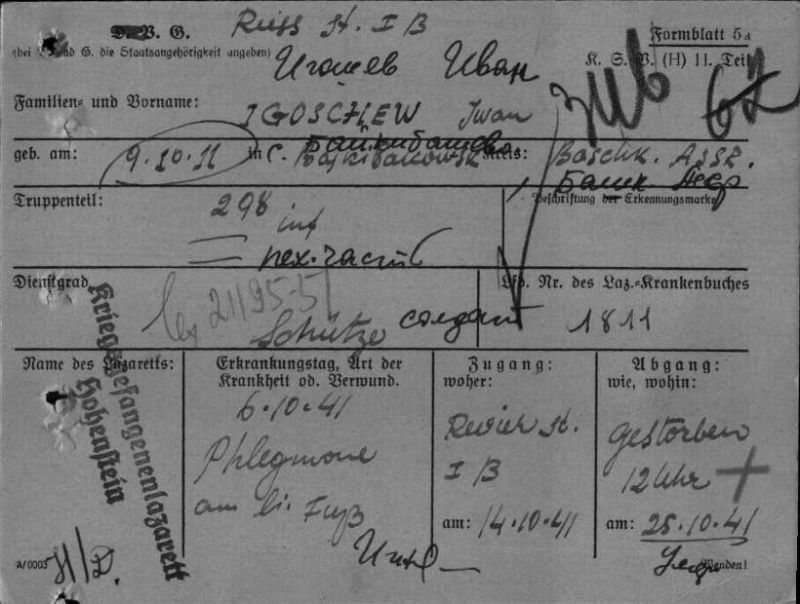 D. V. G. Russ St. I B
Formblatt 5a
(bei V. und G. die Staatsangehörigkeit angeben)
K. S. V. (H) 11. Teil
Игошев Иван
62
Familien- und Vorname:
IGOSCHEW Iwan
geb. am: 9.10.11 in С. Kreis: Baschk. ASSR.
Башк. Асср
Truppenteil:
298 inf
пех. част
Beschriftung der Erkennungsmarke
Dienstgrad
21195-5
Schütze солдат
Lfd. Nr. des Laz.-Krankenbuches
1811
Name des Lazaretts:
Kriegsgefangenenlazarett
Hohenstein
Erkrankungstag, Art der
Krankheit od. Verwund.
6.10.41
Phlegmone
am li. Fuß
Zugang:
woher:
Revier St.
I B
am: 14.10.41
Abgang:
wie, wohin:
gestorben
12 Uhr +
am: 25.10.41
A/0003
Wenden!